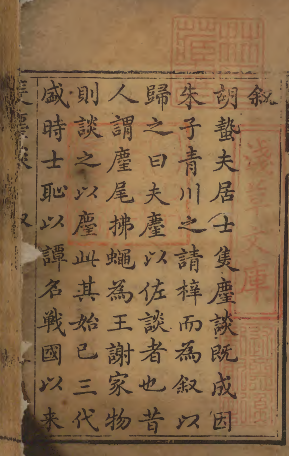 叙
胡蟄夫居士隻塵談既成因
朱子青川之請梓而為叙以
歸之曰夫麈以佐談者也昔
人謂麈尾拂蠅為王謝家物
則談之以麈此其始已三代
盛時士恥以譚名戰國以来
淺草文庫